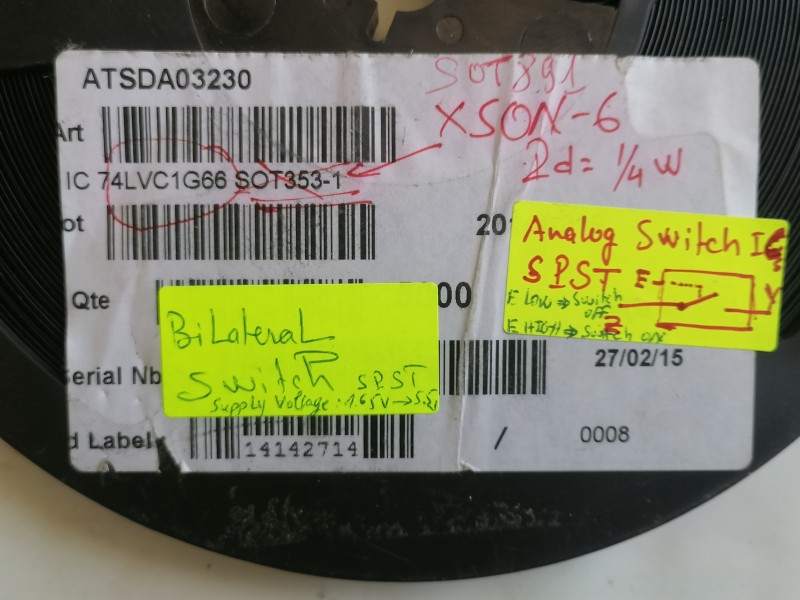 ATSDA03230
SOT891
XSON-6
Art
IC 74LVC1G66 SOT353-1
Pd = 1/4 W
ot
20
Analog Switch IC
SPST E
Y
E LOW ⇒ Switch
off
E HIGH ⇒ Switch on
Qte
00
BiLateral
Switch SPST
Supply Voltage: 1.65V →
27/02/15
erial Nb
d Label
14142714
/
0008